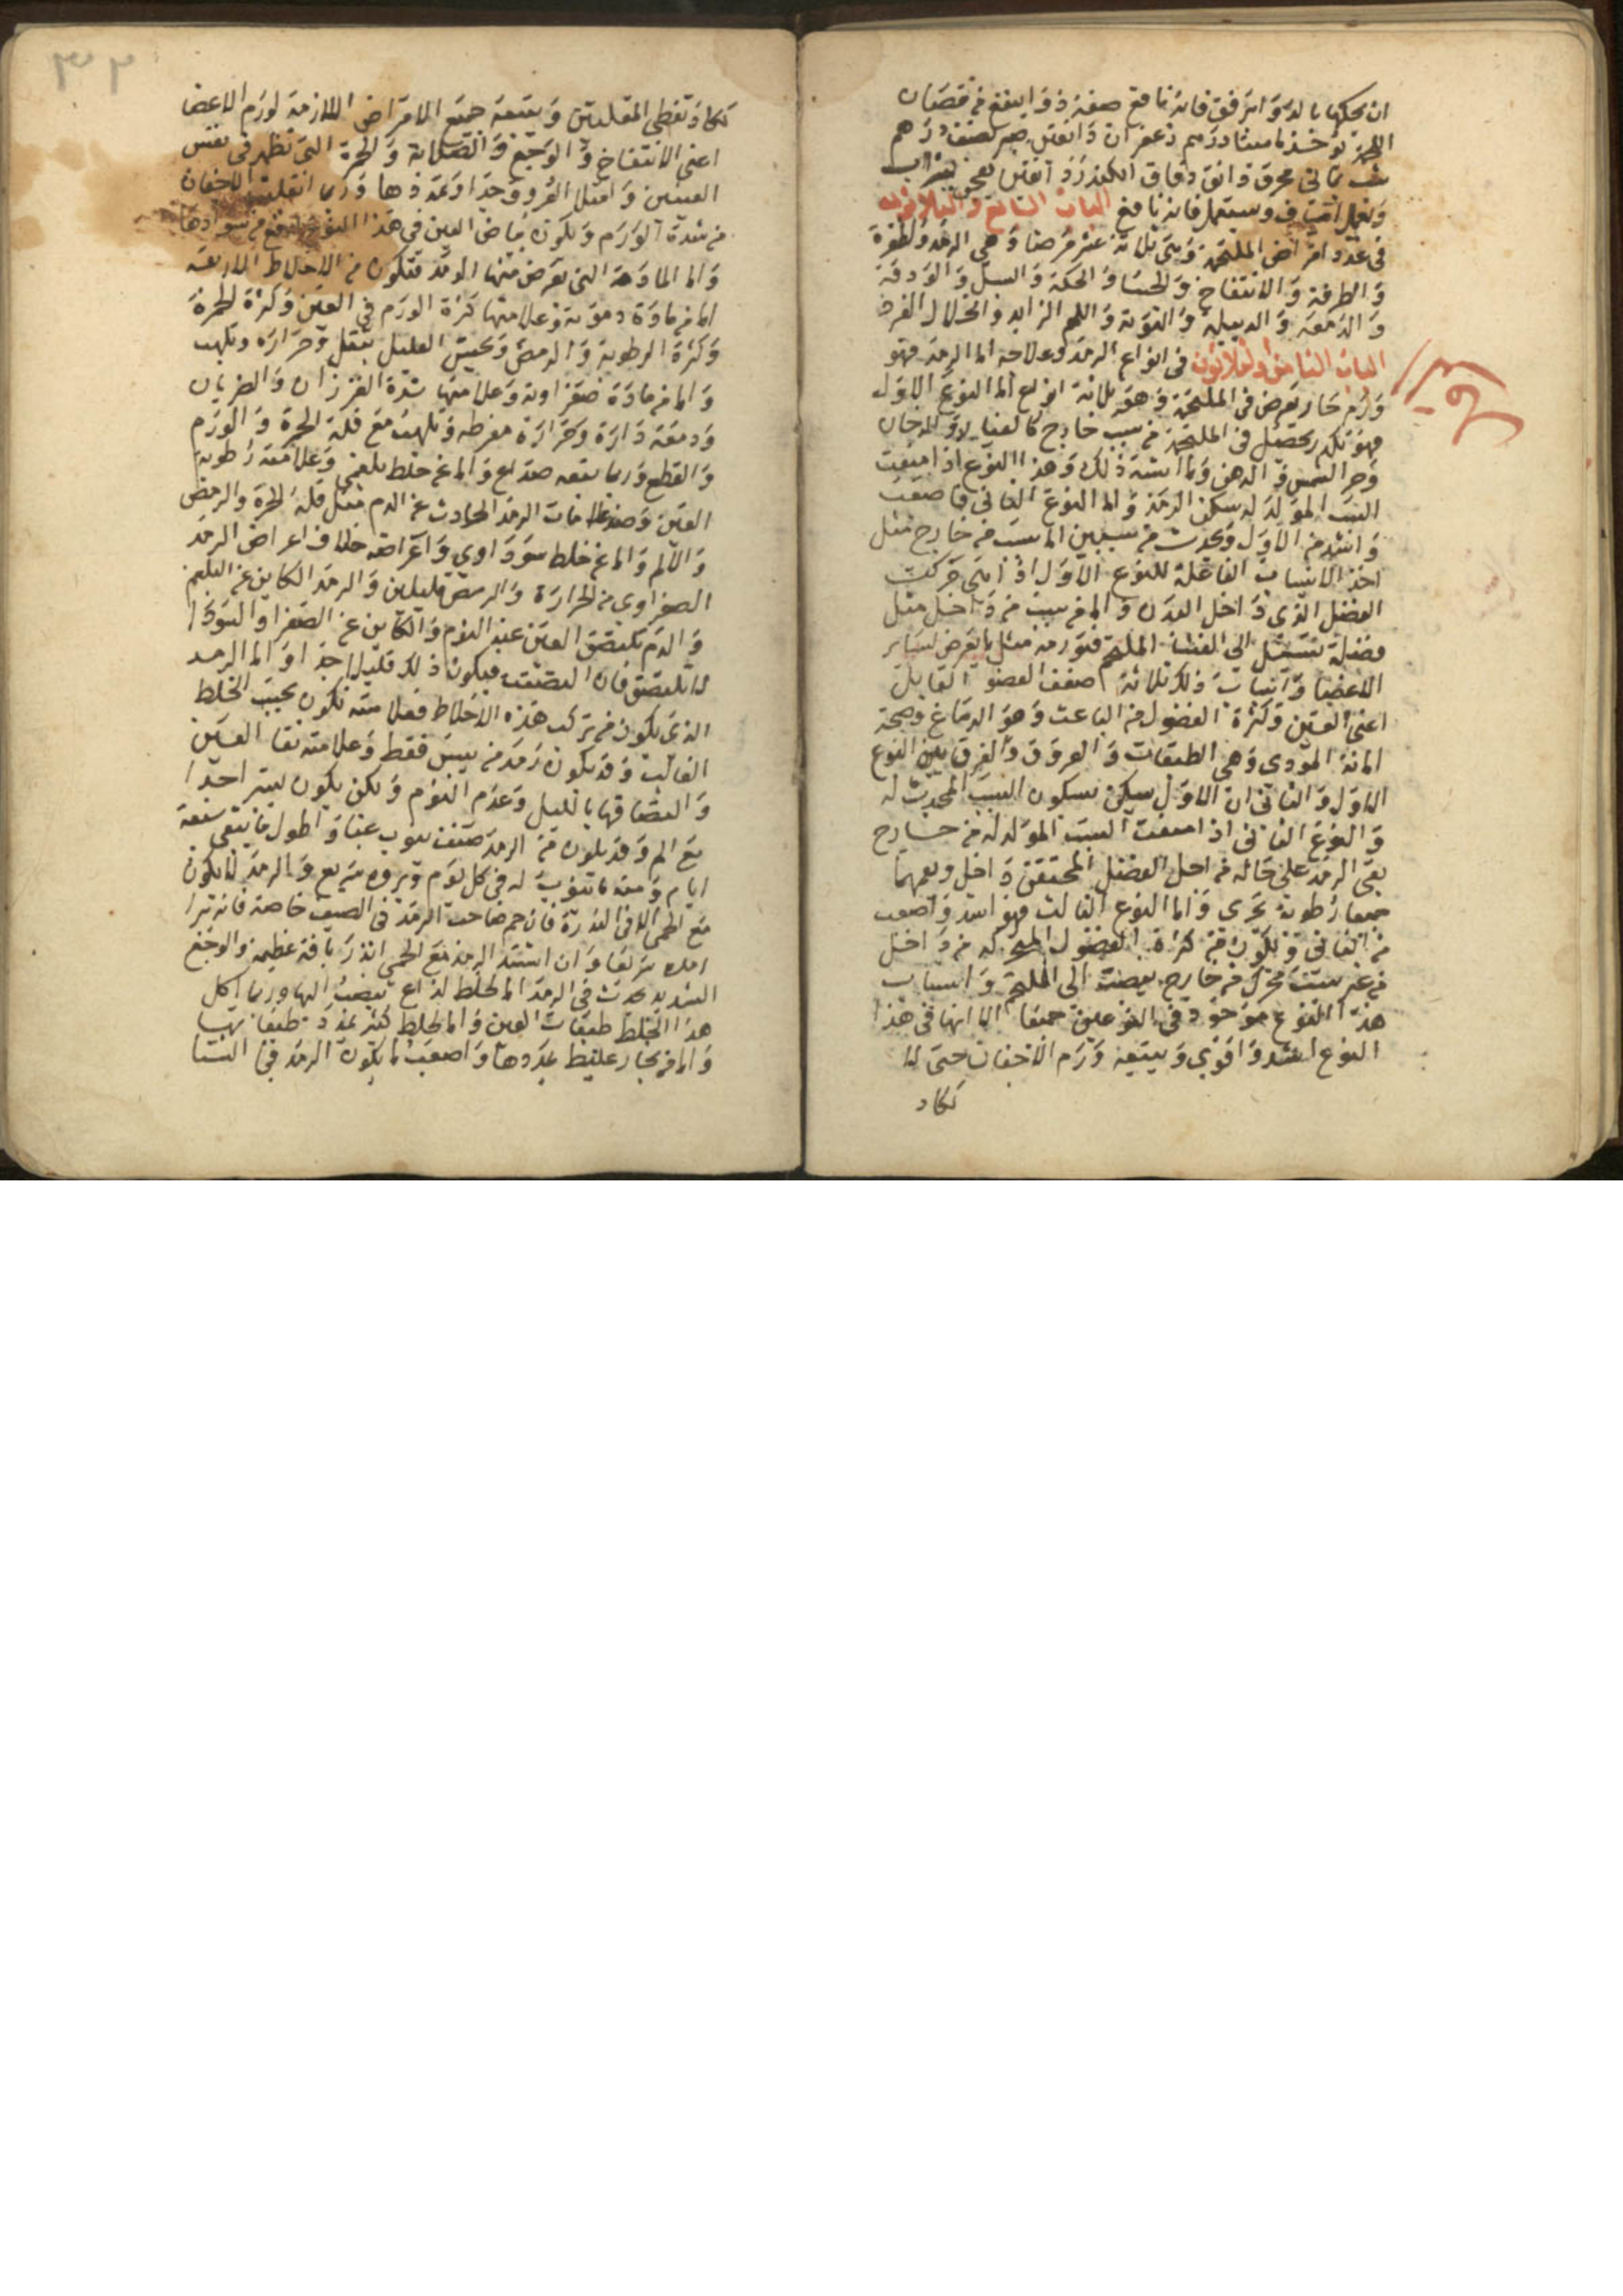 ان تحكها بالدواء برفق فانه نافع صفة ذواينفع من نقصان
اللحمة تؤخذ مامیثا درهم زعفران دانقين صبر نصف درهم
شب يماني محرق دانق دقاق الكندر دانقين يعجن بشراب
ويعمل اشياف ويستعمل فانه نافع الباب السابع والثلاثون
في عدد امراض الملتحمة وهي ثلاثة عشر مرضا وهي الرمد والظفرة
والطرفة والانتفاخ والجسا والحكة والسبل والودقة
والدمعة والدبيلة والتوتة واللحم الزايد وانحلال الفرد
الباب الثامن والثلاثون في انواع الرمد وعلاجه اما الرمد فهو
ورم حار يعرض في الملتحمة وهو ثلاثة انواع اما النوع الاول
فهو تكدر يحصل في الملتحمة من سبب خارج كالغبار والدخان
وحر الشمس والدهن وما اشبه ذلك وهذا النوع اذا
السبب المولد له سكن الرمد واما النوع الثاني فاصعب
واشد من الاول ويحدث من سببين اما سبب من خارج مثل
احد الاسباب الفاعلة للنوع الاول اذا هي حركت
الفضل الذي داخل البدن واما من سبب من داخل مثل
فضلة تسيل الى الغشا الملتحم فتورمه مثل ما يعرض لساير
الاعضا واسباب ذلك ثلاثة اما ضعف العضو القابل
اعني العين وكثرة الفضول من الباعث وهو الدماغ وصحة
المادة المودي وهي الطبقات والعروق والفرق بين النوع
الاول والثاني ان الاول يسكن بسكون السبب المحدث له
والنوع الثاني اذا السبب المولد له من خارج
بقي الرمد على حاله من اجل الفضل المحتقن داخل ويعمهما
جميعا رطوبة تجري واما النوع الثالث فهو اشد واصعب
من الثاني ويكون من كثرة الفضول له من داخل
من غير سبب محرك من خارج يصب الى الملتحم واسباب
هذا النوع موجودة في النوعين جميعا الا انها في هذا
النوع اشد واقوى ويتبعه ورم الاجفان حتى لا
تكاد
٣٢
تكاد تغطي المقلتين ويتبعه جميع الامراض اللازمة لورم الاعضا
اعني الانتفاخ والوجع والصلابة والحمرة التي تظهر في نفس
العينين وامتلا العروق جدا وتمددها وربما انقلبت الاجفان
من شدة الورم ويكون بياض العين في هذا النوع ارفع من سوادها
واما المادة التي يعرض منها الرمد فتكون من الاخلاط الاربعة
اما من مادة دموية وعلامتها كثرة الورم في العين وكثرة الحمرة
وكثرة الرطوبة والرمص ويحس العليل بثقل وحرارة وتلهب
واما من مادة صفراوية وعلامتها شدة الغرزان والضربان
ودمعة دارة وحرارة مفرطة وتلهب مع قلة الحمرة والورم
والقطع وربما يتبعه صداع واما عن خلط بلغمي وعلامته رطوبة
العين وضد علامات الرمد الحادث عن الدم مثل قلة الحمرة والرمص
والالم واما عن خلط سوداوي واعراضه خلاف اعراض الرمد
الصفراوي من الحرارة والرمص قليلين والرمد الكاين عن البلغم
والدم تلتصق العين عند النوم والكاين عن الصفرا والسودا
لا تلتصق فان التصقت فيكون ذلك قليلا جدا واما الرمد
الذي يكون من تركب هذه الاخلاط فعلامته تكون بحسب الخلط
الغالب وقد يكون رمد من يبس فقط وعلامته نقا العين
والتصاقها بالليل وعدم النوم ولكن يكون يسير احدا
مع الم وقد يكون من الرمد صنف ينوب غبا واطول ما يبقى سبعة
ايام ومنه ما ينوب له في كل يوم وبروه سريع والرمد لا يكون
مع الحمى الا في الندرة فان حم صاحب الرمد في الصيف خاصة فانه تبرا
سريعا وان اشتد الرمد مع الحمى انذر بافة عظيمة والوجع
الشديد يحدث في الرمد اما لخلط لذاع ينصب اليها وربما اكل
هذا الخلط طبقات العين واما لخلط كثير يمدد طبقاتها
واما من بخار غليظ يمددها واصعب ما يكون الرمد في الشتا